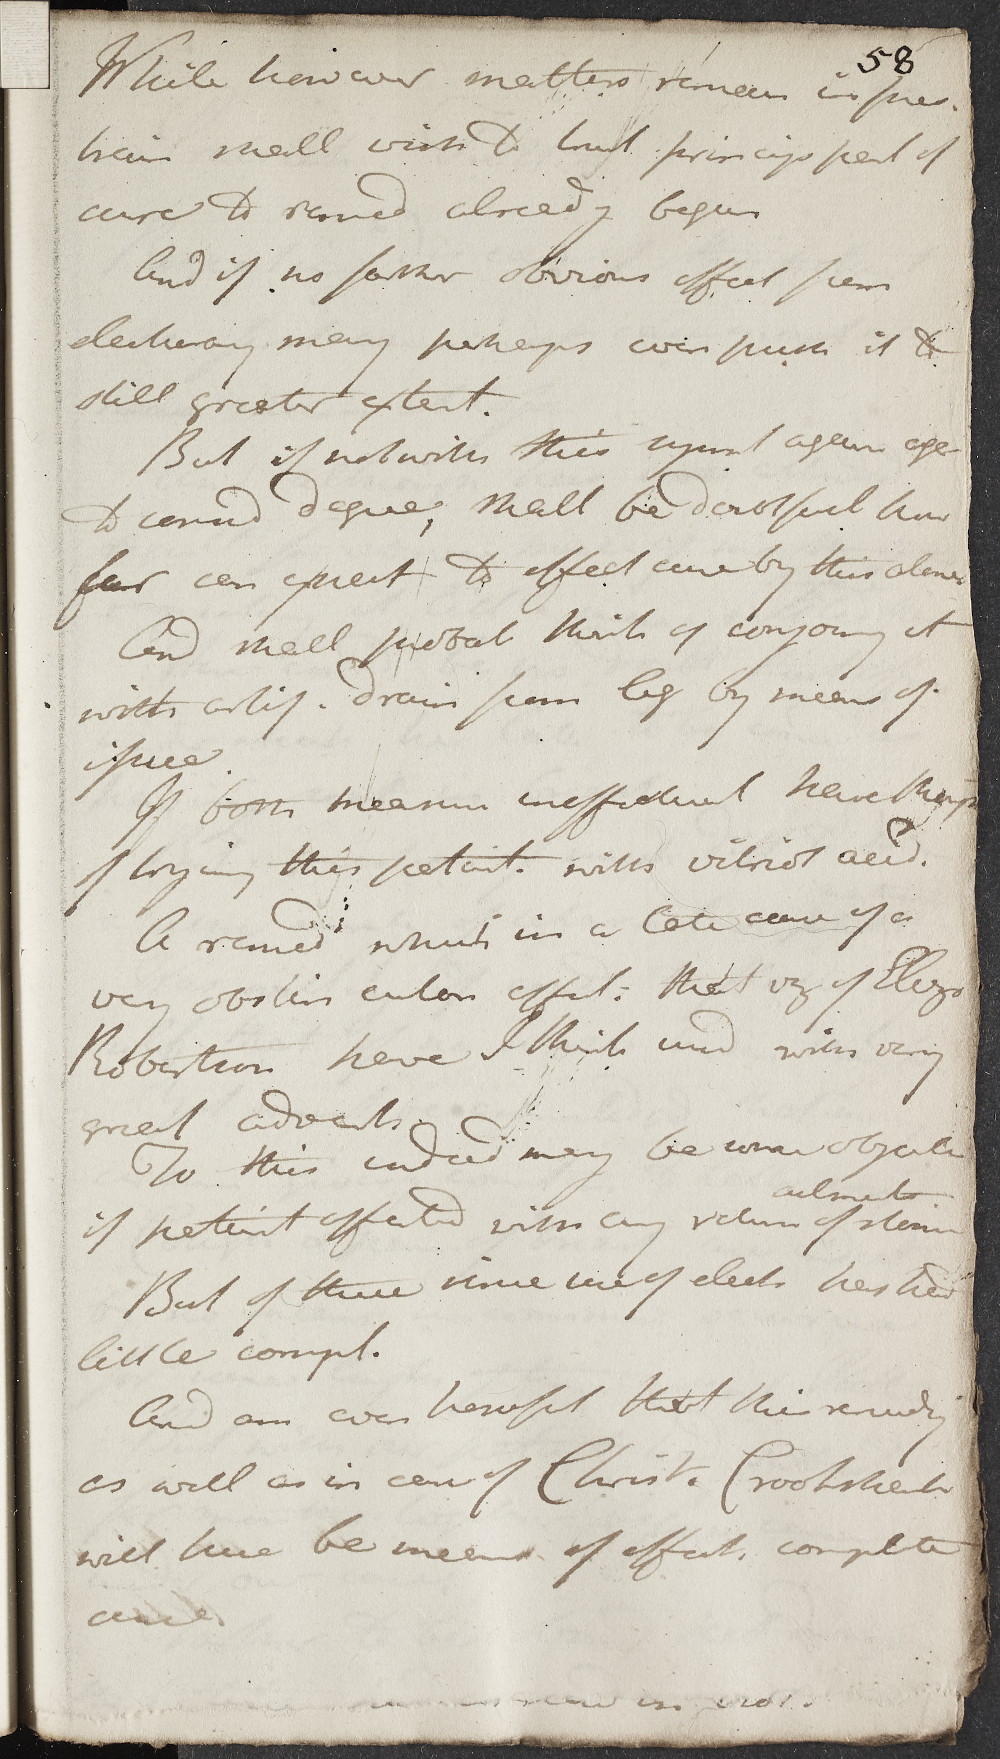 58
While however matters remain in pres.
train shall wish to trust princip part of
cure to remed already begun
And if no farther obvious effect from
electuary may perhaps even push it to
still greater extent.
But if notwith this sympt again
to consid degree, shall be doubtful how
far can expect to effect cure by this alone
And shall probab think of conjoing it
with artif. drain from leg by means of
issue.
If both measures ineffectual have thoughts
of trying this patient. with vitriol acid.
A remed which in a late case of a
very obstin cutan affect: that viz of Eliza
Robertson have I think used with very
great advant.
To this indeed may be some objecti
ailments
if patient affected with any return of stom
But of these since use of elect has had
little compl.
And am even hopefl that this remedy
as well as in case of Christ. Crookshank
will here be means of effect. complete
cure.